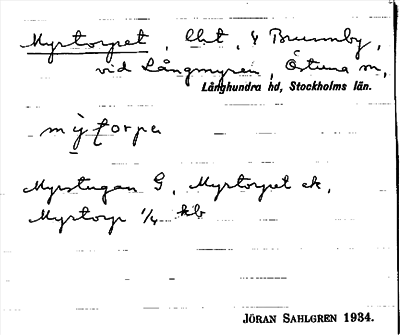 Myrtorpet, lht, y Brunnby,
vid Långmyren, Östuna sn,
Långhundra hd, Stockholms län.
mỳţorpa
Myrstugan G, Myrtorpet ek,
Myrtorp 1/4 kb
JÖRAN SAHLGREN 1934.